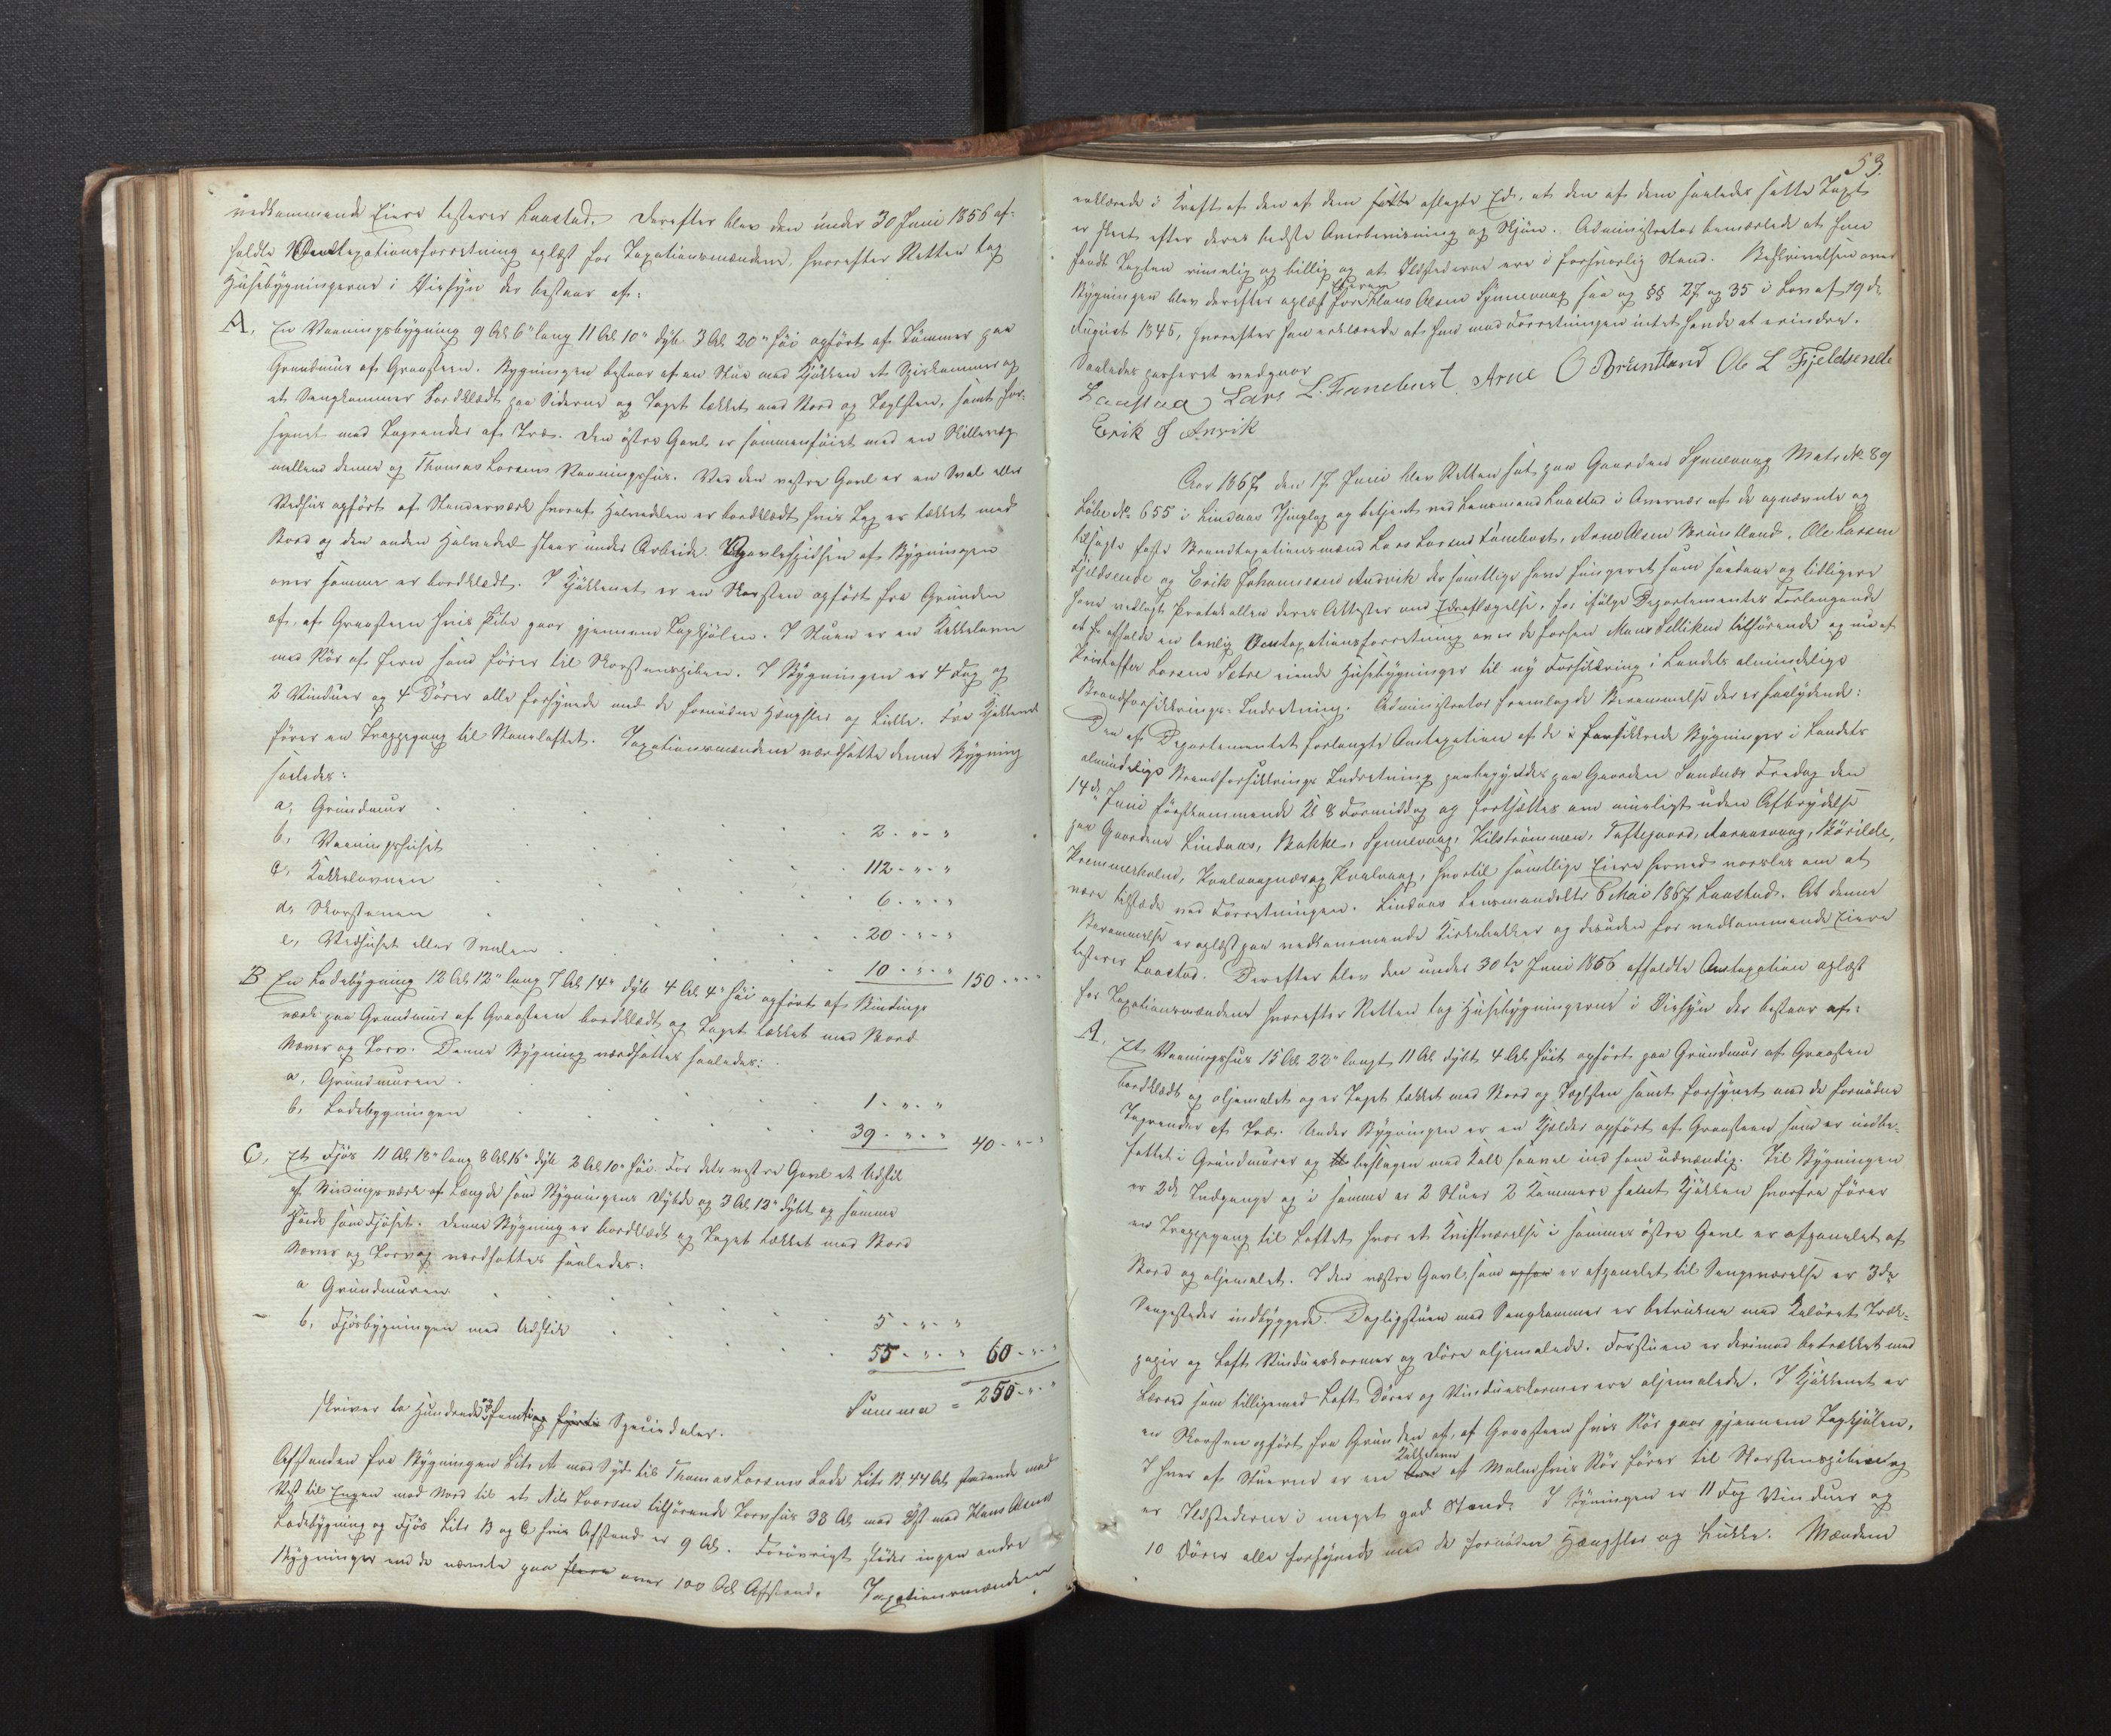 vedkommende Eiere testerer Laastad. Derefter blev den under 30 Juni 1856 af-
holdte Omtaxationsforretning oplæst for Taxationsmændene, hvorefter Retten tog
Husebygningerne i Øiesyn der bestaar af:
A, En Vaaningsbygning 9 Al 6" lang 11 Al 10" dyb 3 Al 20" høi opført af Tømmer paa
Grundmur af Graasteen. Bygningen bestaar af en Stue med Kjøkken et Spiskammer og
et Sengkammer bordklædt paa Siderne og Taget tækket med Bord og Tagsteen, samt for-
synet med Tagrender af Træ. Den østre Gavl er sammenføiet med en Skillevæg
mellem denne og Thomas Larsens Vaaningshus. Ved den vestre Gavl er en Sval eller
Vedhus opført af Stenderværk hvoraf Halvedelen er bordklædt hvis Tag er tækket med
Bord og den anden Halvedeel staar under Arbeide. Gavlspidsen af Bygningen
over samme er bordklædt. I Kjøkkenet er en Skorsten opført fra Grunden
af, af Graasteen hvis Pibe gaar gjennem Tagkjølen. I Stuen er en Kakkelovn
med Rør af Jern som fører til Skorstenspiben. I Bygningen er 4 Fag og
2 Vinduer og 4 Dører alle forsynede med de fornødne Hængsler og Lukke. Fra Kjøkkenet
fører en Trappegang til Stueloftet. Taxationsmændene værdsatte denne Bygning
saaledes:
a, Grundmur 2 - " - "
b, Vaaningshuset 112 - " - "
c, Kakkelovnen 6 - " - "
d, Skorstenen 20 - " - "
e, Vedhuset eller Svalen 10 - " - " 150 - " - "
B En Ladebygning 12 Al 12" lang 7 Al 14" dyb 4 Al 4" høi opført af Bindings
værk paa Grundmur af Graasteen bordklædt og Taget tækket med Bord
Næver og Torv. Denne Bygning værdsattes saaledes:
a, Grundmuren 1 - " - "
b, Ladebygningen 39 - " - " 40 - " - "
C, Et Fjøs 11 Al 18" lang 8 Al 16" dyb 3 Al 10" høi. For dets vestre Gavl et Udskil
af Bindingsværk af Længde som Bygningens Dybde og 3 Al 12" dybt og samme
Høide som Fjøset. Denne Bygning er bordklædt og Taget tækket med Bord
Næver og Torv og værdsattes saaledes:
a Grundmuren 5 - " - "
b, Fjøsbygningen med Udskil 55 - " - " 60 - " - "
Summa = 250 - " - "
skriver to Hundrede og femti Speciedaler.
Afstanden fra Bygningen Litr A mod Syd til Thomas Larsens Lade Litr B 44 Al stødende mod
Vest til Engen mod Nord til et Nils Ivarsen tilhørende Tørvhus 38 Al mod Øst med Klaus Olsens
Ladebygning og Fjøs Litr B og C hvis Afstand er 9 Al. Forøvrigt støder ingen andre
Bygninger end de nævnte paa flere over 100 Al Afstand. Taxationsmændene
53.
erklærede i Kraft af den af dem satte aflagte Ed, at den af dem saaledes satte Taxt
er skeet efter deres bedste Overbevisning og Skjøn. Administrator bemærkede at han
fandt Taxten rimelig og billig og at Ildstederne ere i forsvarlig Stand. Beskrivelsen over
Bygningen blev derefter oplæst for Eieren Klaus Olsen Spjuevaag saa og §§ 27 og 35 i Lov af 19de
August 1845, hvorefter han erklærede at han mod Forretningen intet havde at erindre.
Saaledes passeret vedgaar
Laastad Lars L. Fanebust Arne O Brüntland Ole L Fjeldsende
Erik J Anvik
Aar 1867 den 17 Juni blev Retten sat paa Gaarden Spjuevaag Matr No 89
Løbe No 655 i Lindaas Thinglag og betjent ved Lensmand Laastad i Overvær af de opnævnte og
tilsagte faste Brandtaxationsmænd Lars Larsen Fanebust, Arne Olsen Brüntland, Ole Larsen
Fjeldsende og Erik Johannesen Andvik der samtlige have fungeret som saadane og tidligere
have vedlagt Protokollen deres Attester om Edsaflæggelse, for ifølge Departementets Forlangende
at afholde en lovlig Omtaxationsforretning over de forhen Mons Sellikens tilhørende og nu af
Kristoffer Larsen Sætre eiende Husebygninger til ny Forsikkring i Landets almindelige
Brandforsikkrings-Indretning. Administrator fremlagde Berammelse der er saalydende:
Den af Departementet forlangte Omtaxation af de i forsikkrede Bygninger i Landets
almindelige Brandforsikkrings Indretning paabegyndes paa Gaarden Sundnæs Fredag den
14de Juni førstkommende Kl 8 Formiddag og fortsættes om muligt uden Afbrydelse
paa Gaardene Lindaas, Bakke, Spjuevaag, Kilstrømmen, Toftegaard,
hvortil samtlige Eiere herved varsles om at
være tilstæde ved Forretningen. Lindaas Lensmandsbst 6 Mai 1867 Laastad. At denne
Berammelse er oplæst paa vedkommende Kirkebakker og desuden for vedkommende Eiere
testerer Laastad. Derefter blev den under 30te Juni 1856 afholdte Omtaxation oplæst
for Taxationsmændene hvorefter Retten tog Husebygningerne i Øiesyn der bestaar af:
A, Et Vaaningshus 15 Al 22" langt 11 Al dybt 4 Al høit opført paa Grundmur af Graasteen
bordklædt og oljemalet og er Taget tækket med Bord og Tagsten samt forsynet med de fornødne
Tagrender af Træ. Under Bygningen er en Kjelder opført af Graasteen som er indbe-
fattet i Grundmuren og beslagen med Kalk saavel ind som udvendig. Til Bygningen
er 2de Indgange og i samme er 2 Stuer 2 Kammere samt Kjøkken hvorfra fører
en Trappegang til Loftet hvor et Kvistværelse i sammes østre Gavl er afpanelet af
Bord og oljemalet. I den vestre Gavl, som er afpanelet til Sengeværelse er 3de
Sengesteder indbyggede. Dagligstuen med Sengkammer er betrukne med kulørt Træk-
papir og Loft Vindueskarmer og Døre oljemalede. Forstuen er derimod betrækket med
Lærred som tilligemed Loft Dører og Vindueskarmer ere oljemalede. I Kjøkkenet er
en Skorsten opført fra Grunden af, af Graasteen hvis Rør gaar gjennem Tagkjølen.
I hver af Stuerne er en Kakkelovn af Malm hvis Rør fører til Skorstenspiben og
er Ildstederne i meget god Stand. I Bygningen er 11 Fag Vinduer og
10 Dører alle forsynede med de fornødne Hængsler og Lukke. Mændene